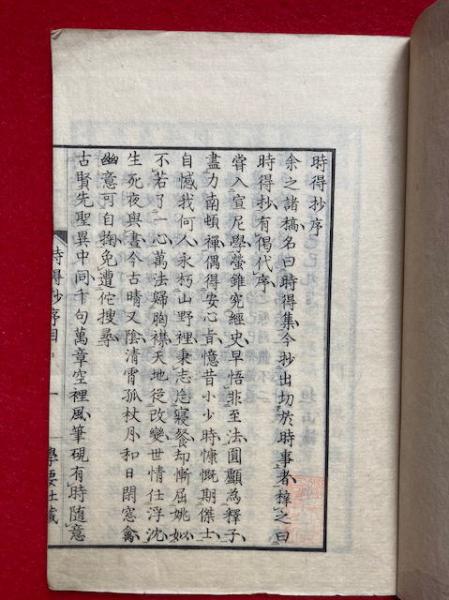 時得抄序
余之諸稿名曰時得集今抄出切於時事者梓之曰
時得抄有偈代序
嘗入宣尼學螢雖究經史早悟非至法圓顱為釋子
盡力南頓禪偶得安心旨憶昔小少時慷慨期傑士
自憾我何人永朽山野裡隶志忘寢餐却慚屈姚姒
不若了一心萬法歸胸襟天地從改變世情任浮沈
生死夜與晝今古晴又陰清霄孤杖月和日閑窓禽
幽意可自掬免遭佗搜尋
古賢先聖異中同千句萬章空裡風筆硯有時隨意
時得抄序目
一
學要社藏